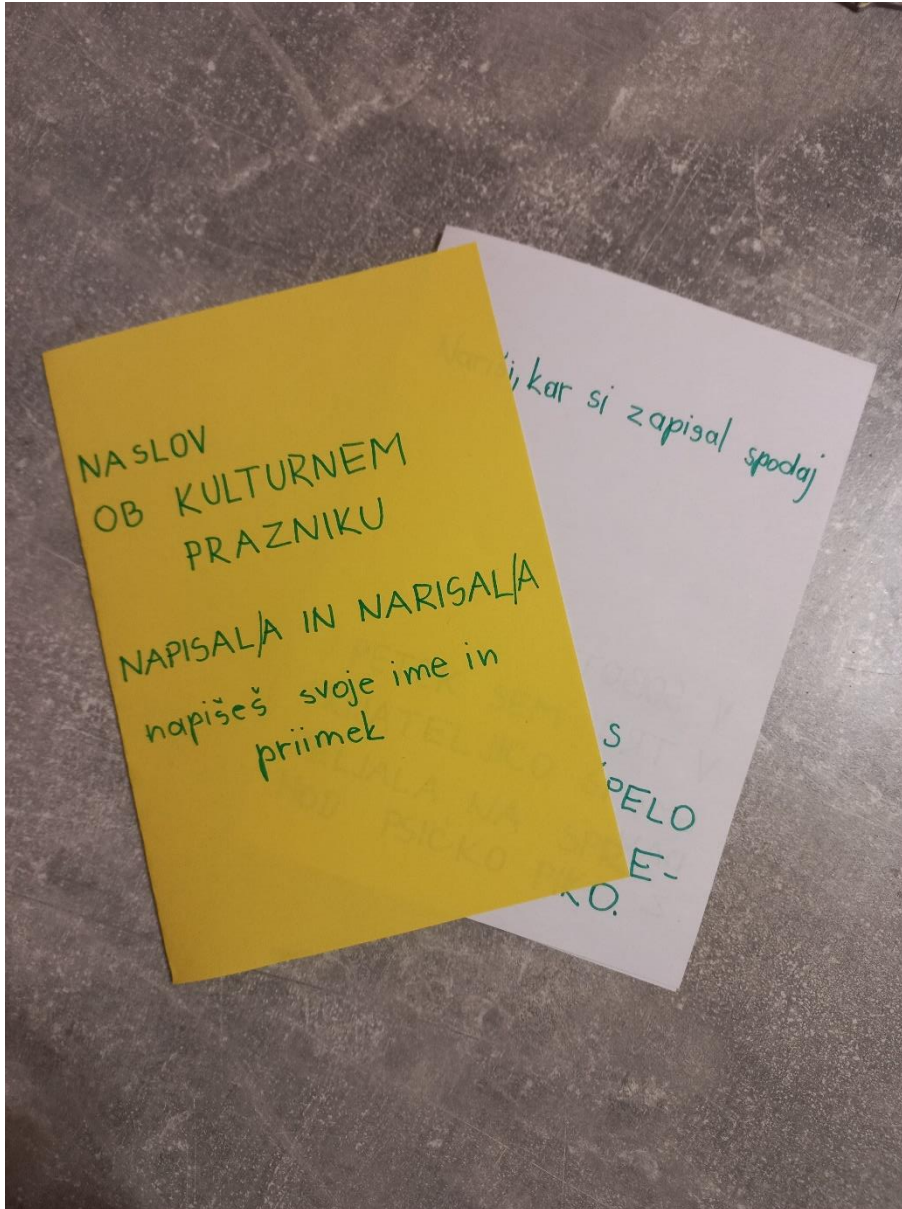 NASLOV
OB KULTURNEM
PRAZNIKU
NAPISAL/A IN NARISAL/A
napišeš svoje ime in
priimek
kar si zapisal spodaj
S
PELO
E-
KO.